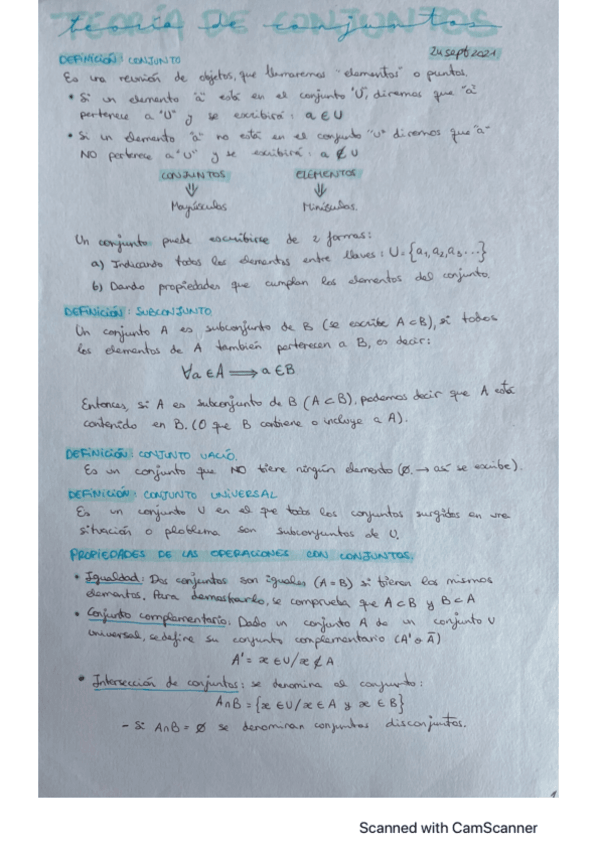 TEORÍA DE CONJUNTOS
teoría de conjuntos
24 sept 2021
DEFINICIÓN: CONJUNTO
Es una reunión de objetos, que llamaremos "elementos" o puntos.
• Si un elemento "a" está en el conjunto "U", diremos que "a"
pertenece a "U" y se escribirá: a ∈ U
• Si un elemento "a" no está en el conjunto "U" diremos que "a"
NO pertenece a "U" y se escribirá: a ∉ U
CONJUNTOS ELEMENTOS
⇓ ⇓
Mayúsculas Minúsculas.
Un conjunto puede escribirse de 2 formas:
a) Indicando todos los elementos entre llaves: U = {a₁, a₂, a₃ ...}
b) Dando propiedades que cumplan los elementos del conjunto.
DEFINICIÓN: SUBCONJUNTO
Un conjunto A es subconjunto de B (se escribe A ⊂ B), si todos
los elementos de A también pertenecen a B, es decir:
∀a ∈ A ⟹ a ∈ B
Entonces, si A es subconjunto de B (A ⊂ B), podemos decir que A está
contenido en B. (O que B contiene o incluye a A).
DEFINICIÓN: CONJUNTO VACÍO.
Es un conjunto que NO tiene ningún elemento (∅ → así se escribe).
DEFINICIÓN: CONJUNTO UNIVERSAL
Es un conjunto U en el que todos los conjuntos surgidos en una
situación o problema son subconjuntos de U.
PROPIEDADES DE LAS OPERACIONES CON CONJUNTOS.
• Igualdad: Dos conjuntos son iguales (A = B) si tienen los mismos
elementos. Para demostrarlo, se comprueba que A ⊂ B y B ⊂ A
• Conjunto complementario: Dado un conjunto A de un conjunto U
universal, se define su conjunto complementario (A' o Ā)
A' = x ∈ U / x ∉ A
• Intersección de conjuntos: se denomina al conjunto:
A∩B = {x ∈ U / x ∈ A y x ∈ B}
- Si A∩B = ∅ se denominan conjuntos disconjuntos.
1
Scanned with CamScanner